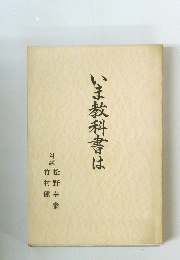 いま教科書は
対談
松野幸泰
竹村健一